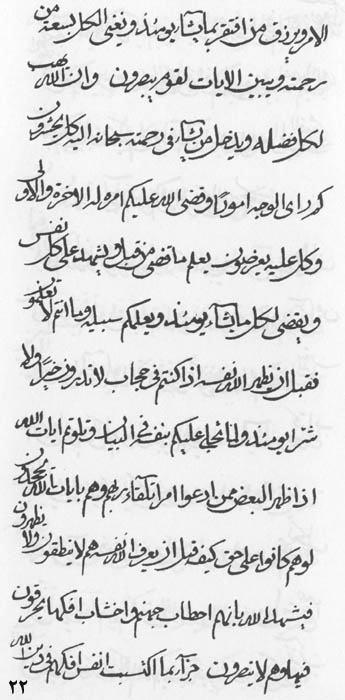 الامر ويرزق من افتقر بما يشآء يومئذ ويغنى الكل بسعة من
رحمته ويبين الايات لقوم يبصرون وان الله يهب
لكل فضله ويدخل من يشآء فى رحمته سبحانه اليه كل يحشرون
كم راى الوجه امورًا وقضى الله عليكم امره له الاخرة والاولى
وكل عليه يعرضون يعلم ما قضى من قبل ويشهد على كل نفس
ويقضى لكل ما يشآء يومئذ ويعلمكم سبيله وما انتم لا تعلمون
فقبل ان يظهر الله نفسه اذا كنتم فى حجاب لا تدرون خيرًا ولا
شرًا يومئذ ولما تجلى عليكم بنفسه البيان وتلوتم ايات الله
اذا ظهر البعض ممن ادعوا امرا بلقاء ربهم وهم بايات الله يجحدون
لو هم كانوا على حق كيف قبل ان يعرف الله نفسه هم لا ينطقون ولا يظهرون
فيشهد الله بانهم احطاب جهنم واخشاب افكهم يحرقون
فيها وهم لا ينصرون جزآء بما اكتسبت انفس افكهم فى دين الله
٢٢